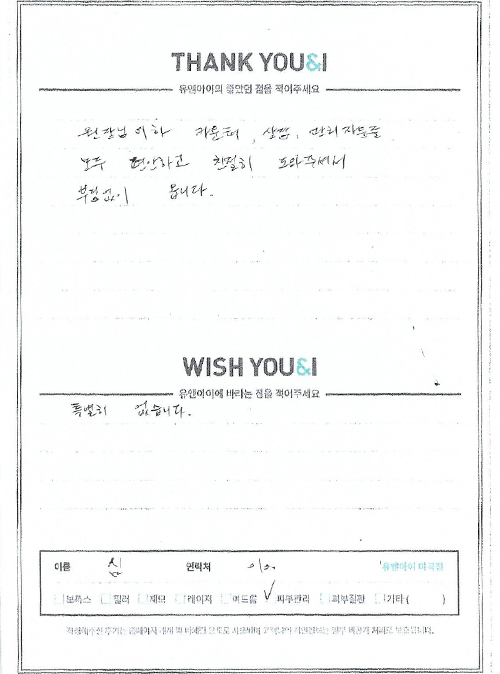 THANK YOU&I
유앤아이의 좋았던 점을 적어주세요
원장님 이하 카운터, 상담, 관리자분들
모두 편안하고 친절히 도와주셔서
부담없이 옵니다.
WISH YOU&I
유앤아이에 바라는 점을 적어주세요
특별히 없습니다.
이름 심 연락처 010 유앤아이 마곡점
보톡스 필러 제모 레이저 여드름 피부관리 피부질환 기타 ( )